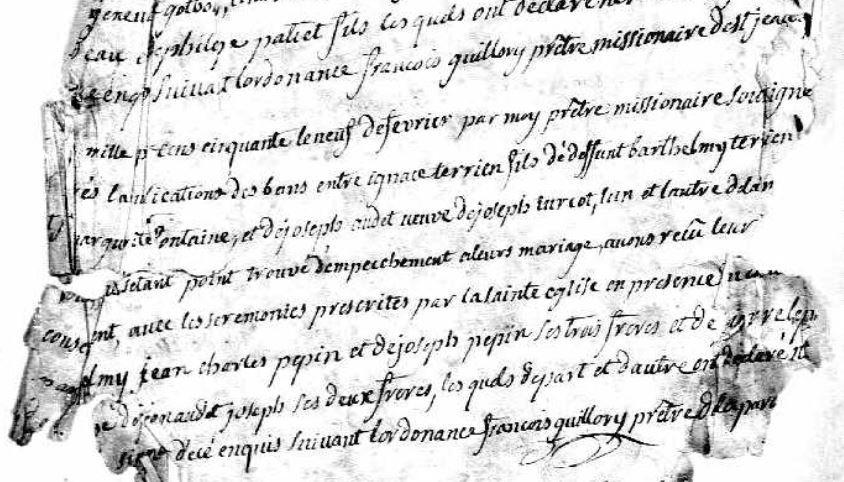 geneuf
eau dephilipe patiet fils les quels ont declare ne
de enqs suivant lordonance francois quillory prêtre missionaire dest jean
mille p cens cinquante le neuf de fevrier par moy prêtre missionaire soussigne
es la ublications des bans entre ignace terrien fils dé deffunt barthelmy terrien
arguritte fontaine, et de joseph audet veuve de joseph turcot, lun et lautre d
sétant point trouvé dempecchement aleurs mariage, avons recû leur
cons ent, avec les seremonies prescrites par la sainte eglise en presence
my jean charles pepin et de joseph pepin ses trois freres et de
joseph ses deux freres, les quels de part et dautre ont declaré
signe decé enquis suivant lordonance francois quillory prêtre